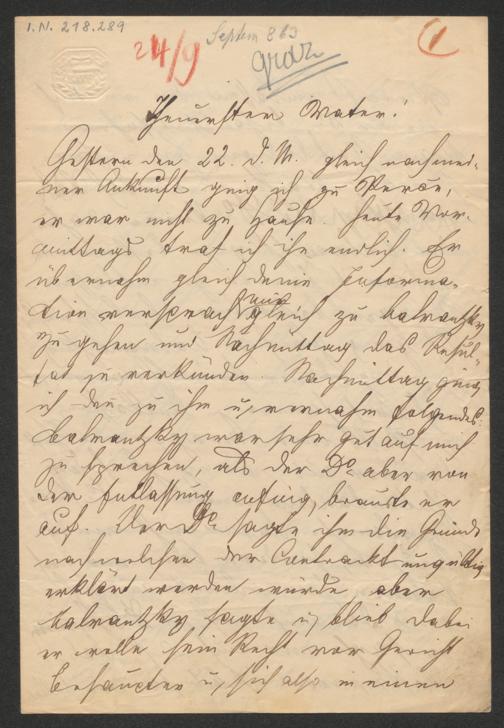 I.N. 218.289
24/9
Septem 863
Graz
1
Theuerster Vater!
Gestern den 22. d. M. gleich nach mei-
ner Ankunft ging ich zu
er war nicht zu Hause. Heute Vor-
mittags traf ich ihn endlich. Er
übernahm gleich deine Informa-
tion versprach mir gleich zu Calvansky
zu gehen und Nachmittag das Resul-
tat zu verkünden. Nachmittag ging
ich den zu ihm u, vernahm folgendes:
Calvansky war sehr gut auf mich
zu sprechen, als der Dr aber von
der Entlassung anfing, brauste er
auf. Der Dr sagte ihm die Gründe
nach welchen der Contrackt ungültig
erklärt werden würde, aber
Calvansky sagte u, blieb dabei
er wolle sein Recht vor Gericht
behaupten u, sich also in einen